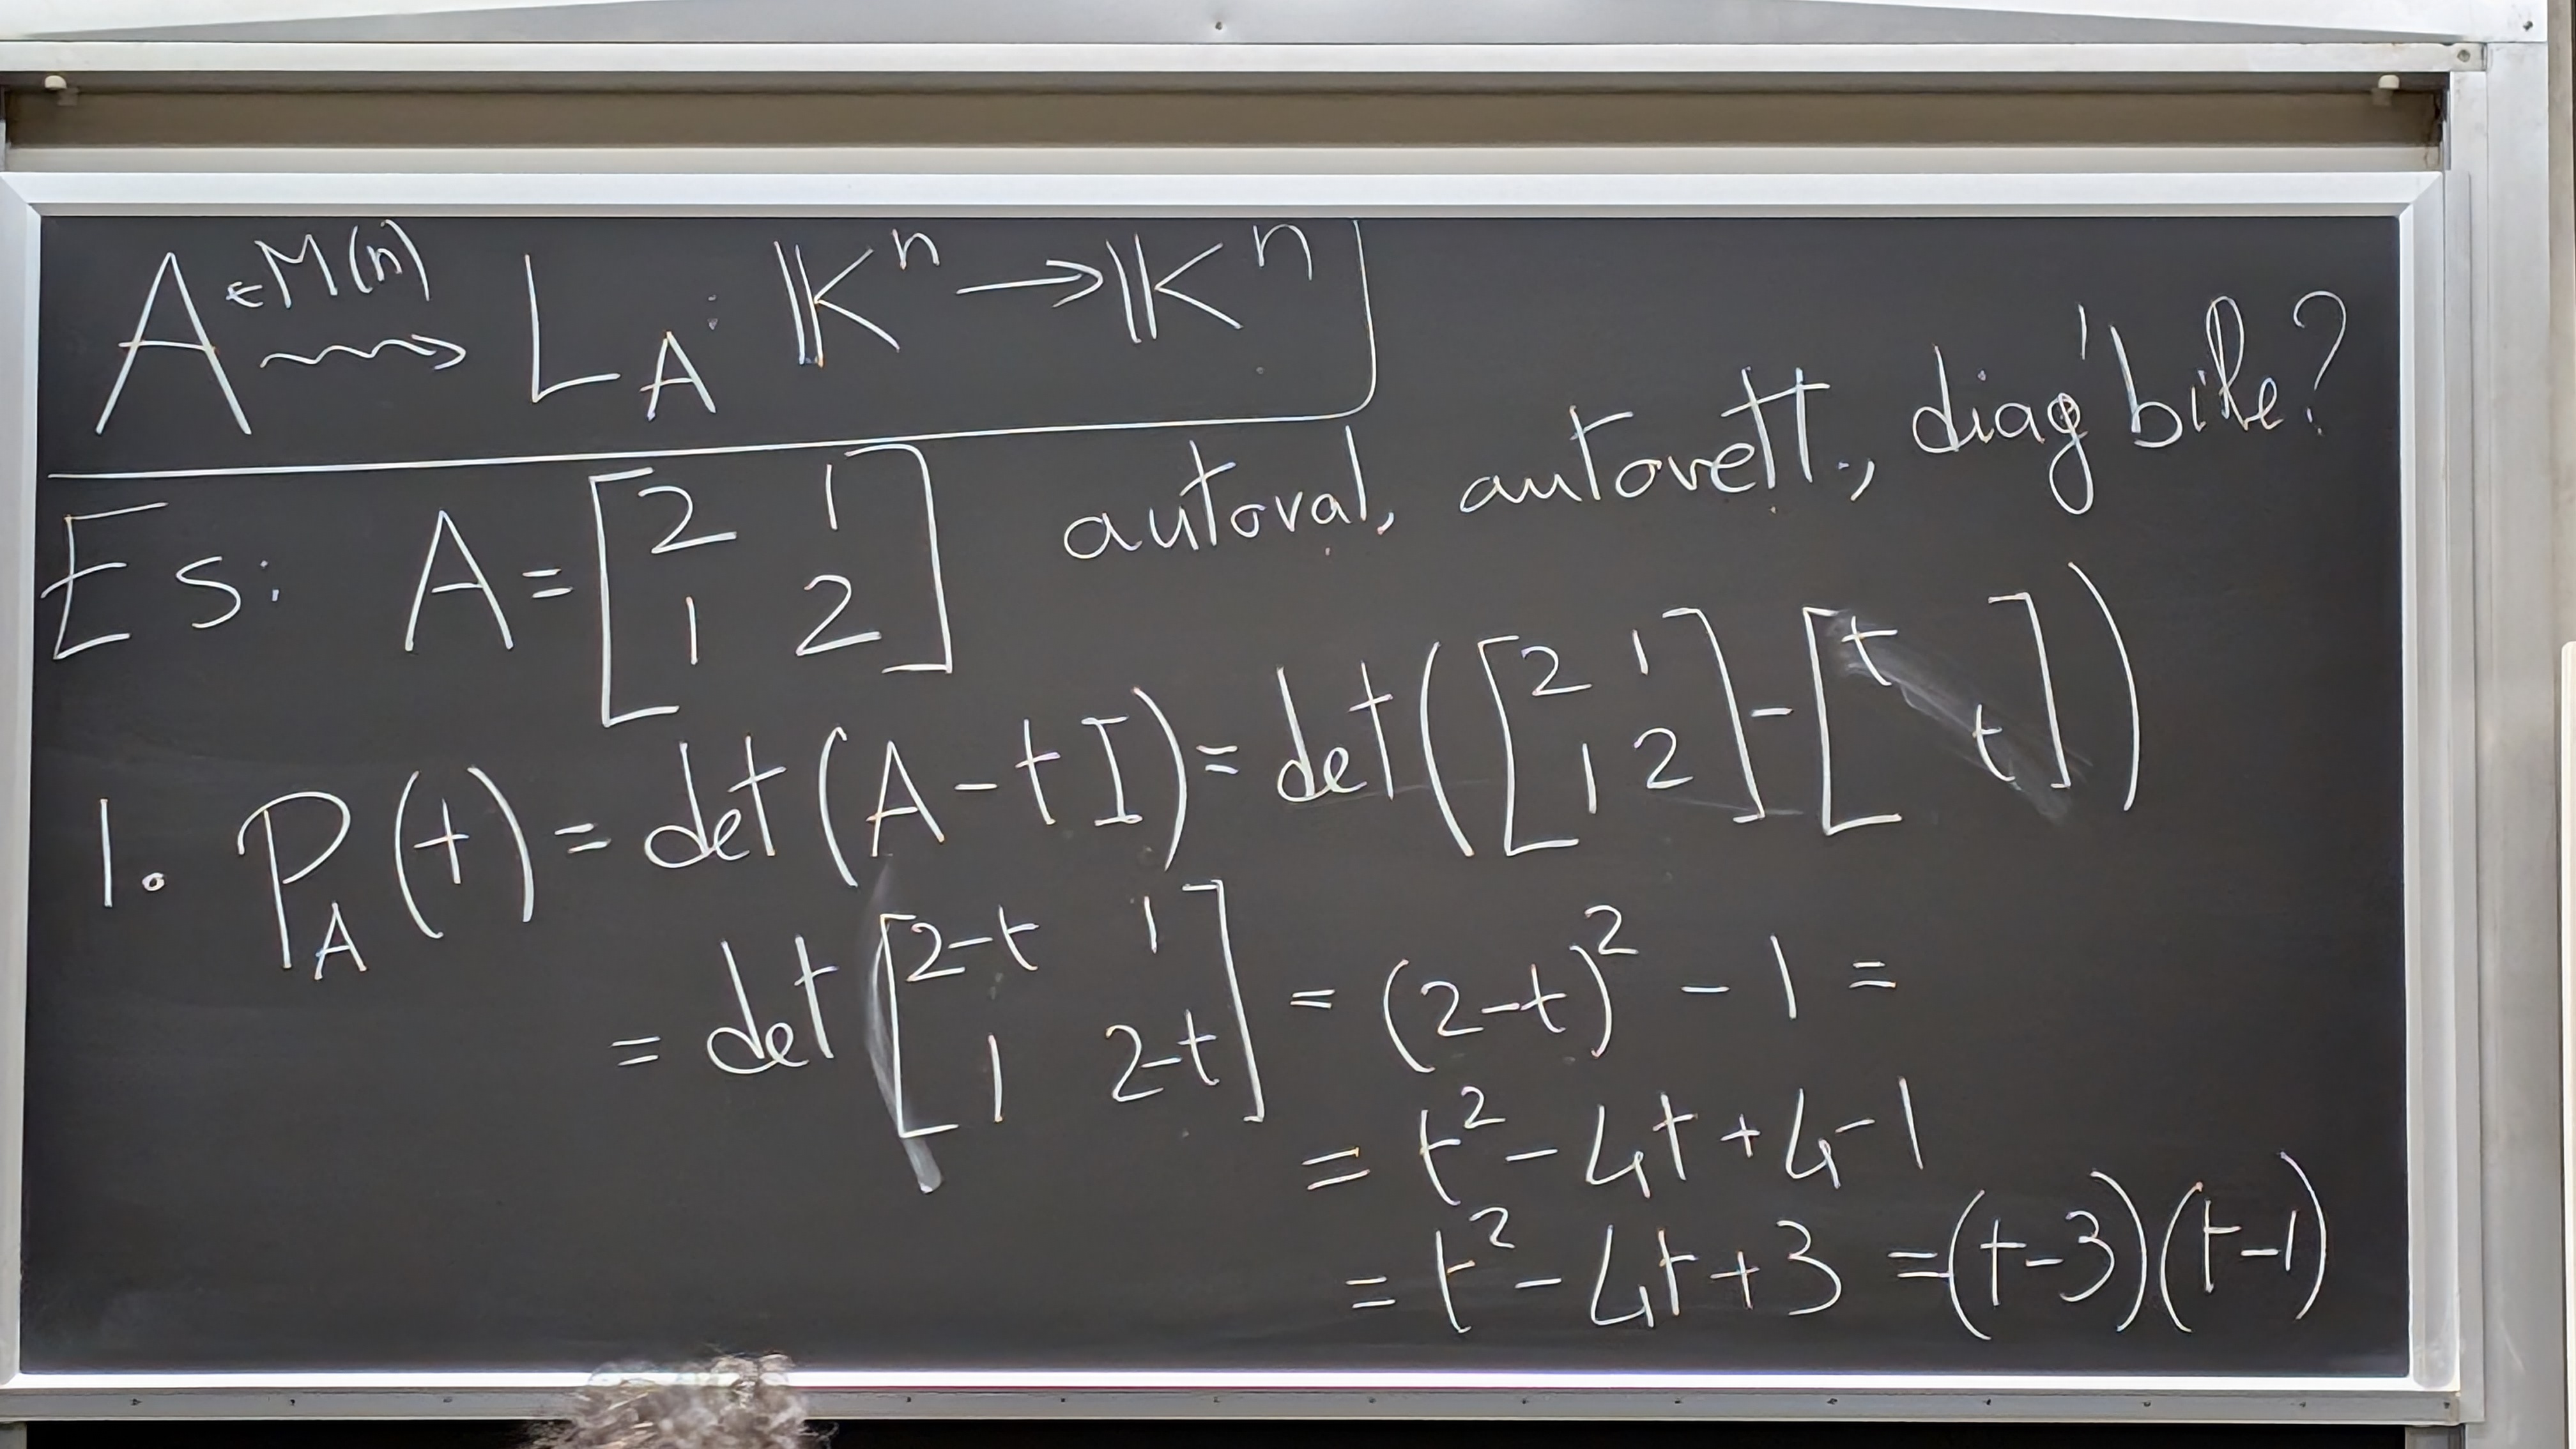 A ∈ M(n) ⇝ L_A : 𝕂^n → 𝕂^n
Es: A = [2 1; 1 2] autoval, autovett., diag'bile?
1. P_A(t) = det(A - tI) = det([2 1; 1 2] - [t  ;  t])
= det[2-t 1; 1 2-t] = (2-t)^2 - 1 =
= t^2 - 4t + 4 - 1
= t^2 - 4t + 3 = (t-3)(t-1)